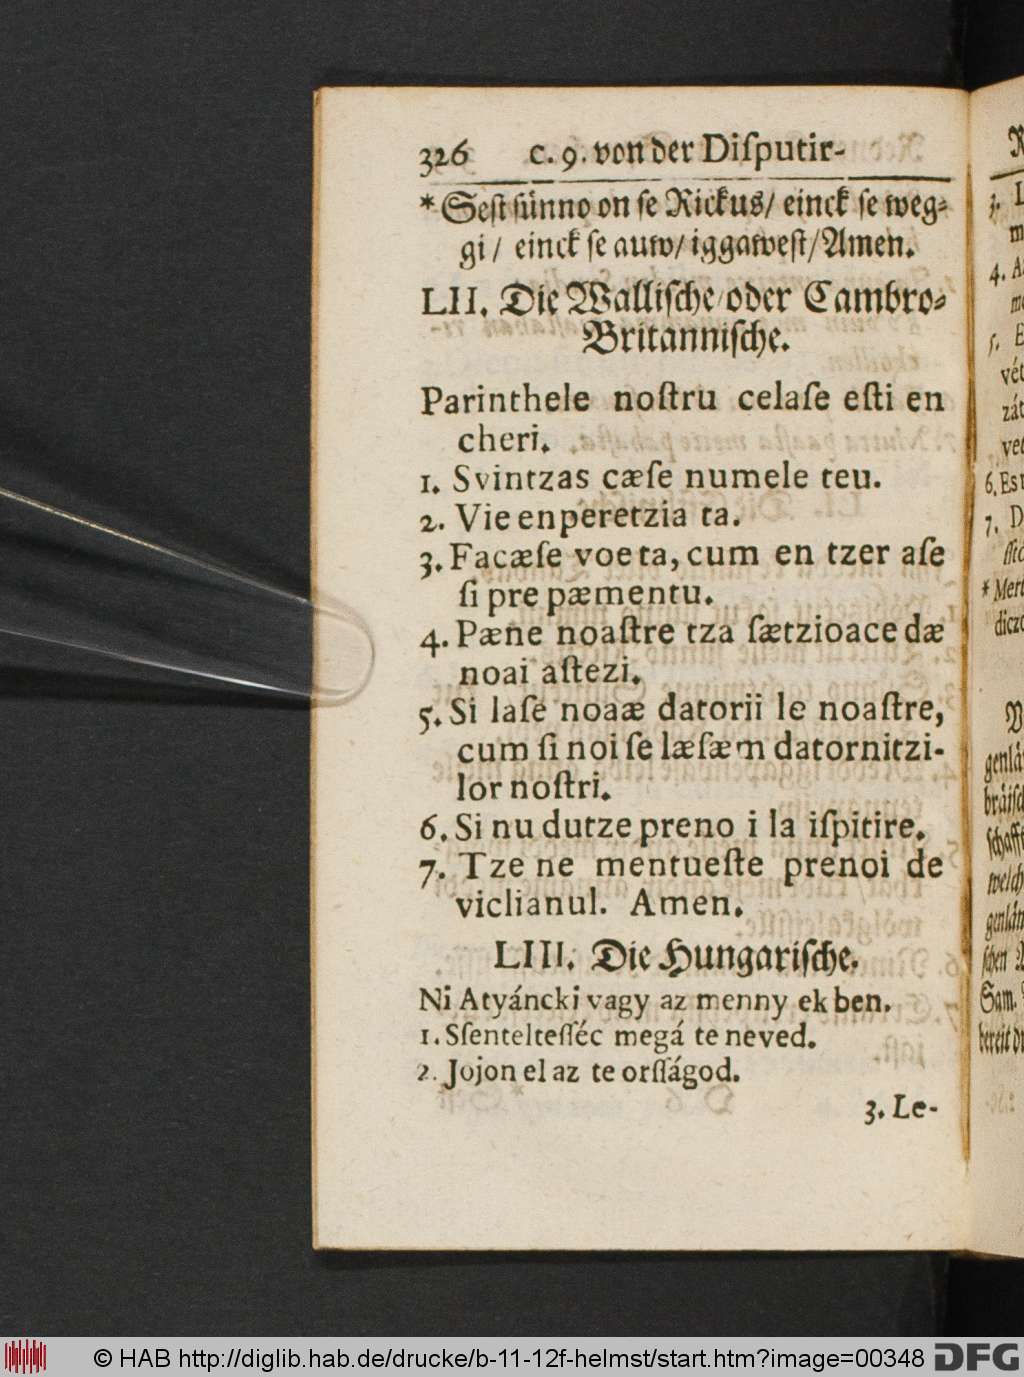 326 c. 9. von der Diſputir-
* Seſt ſünno on ſe Rickus/ einck ſe weg-
gi/ einck ſe auw/ iggaweſt/ Amen.
LII. Die Walliſche/ oder Cambro-
Britanniſche.
Parinthele noſtru celaſe eſti en
cheri.
1. Svintzas cæſe numele teu.
2. Vie enperetzia ta.
3. Facæſe voe ta, cum en tzer aſe
ſi pre pæmentu.
4. Pæne noaſtre tza ſætzioace dæ
noai aſtezi.
5. Si laſe noaæ datorii le noaſtre,
cum ſi noi ſe læſæm datornitzi-
lor noſtri.
6. Si nu dutze preno i la iſpitire.
7. Tze ne mentueſte prenoi de
viclianul. Amen.
LIII. Die Hungariſche.
Ni Atyáncki vagy az menny ekben.
1. Sſenteltefſéc megá te neved.
2. Jojon el az te orſſágod.
3. Le-
3. L
4. A
5. E
vét
zát
6. Es
7. D
* Mert
diczo
genlä
bräiſc
ſchaff
welch
genlän
ſchen
Sam.
bereit
© HAB http://diglib.hab.de/drucke/b-11-12f-helmst/start.htm?image=00348 DFG